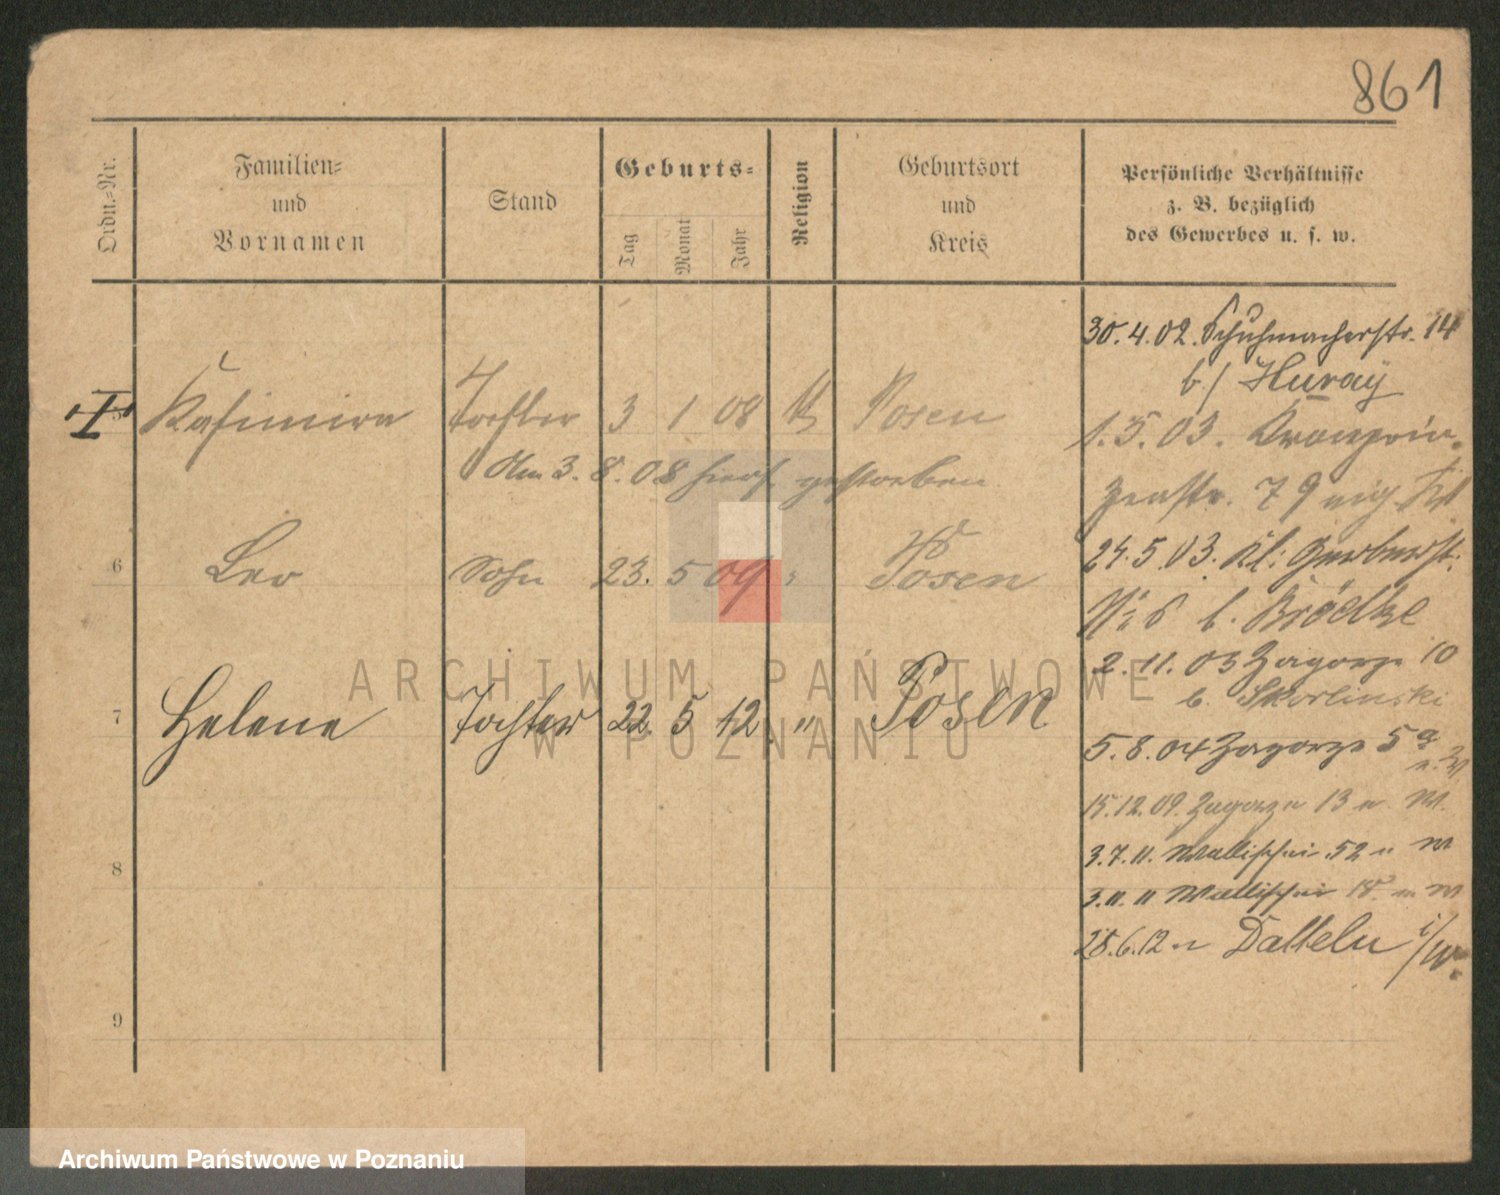 861
Ordn.-Nr.
Familien-
und
Vornamen
Stand
Geburts-
Tag
Monat
Jahr
Religion
Geburtsort
und
Kreis
Persönliche Verhältnisse
z. B. bezüglich
des Gewerbes u. s. w.
5 Kasimira Tochter 3 1 08 Posen
Am 3. 8. 08 hier gestorben
6 Leo Sohn 23. 5 09 " Posen
7 Helene Tochter 22. 5 12 " Posen
8
9
30. 4. 02. Schuhmacherstr. 14
b./ Huray
1. 5. 03. Kronprin-
zenstr. 79
24. 5. 03. Kl: Gerberst.
b. Brödtke
2. 11. 03 Zagorze 10
b. Skorlinski
5. 8. 04 Zagorze 5a
15. 12. 09. Zagorze 13 n. W.
3. 7. 11. Wallischei 52 n W
3. 11. 11 Wallischei 18. n W
28. 6. 12 n Datteln i/W.
ARCHIWUM PAŃSTWOWE
W POZNANIU
Archiwum Państwowe w Poznaniu